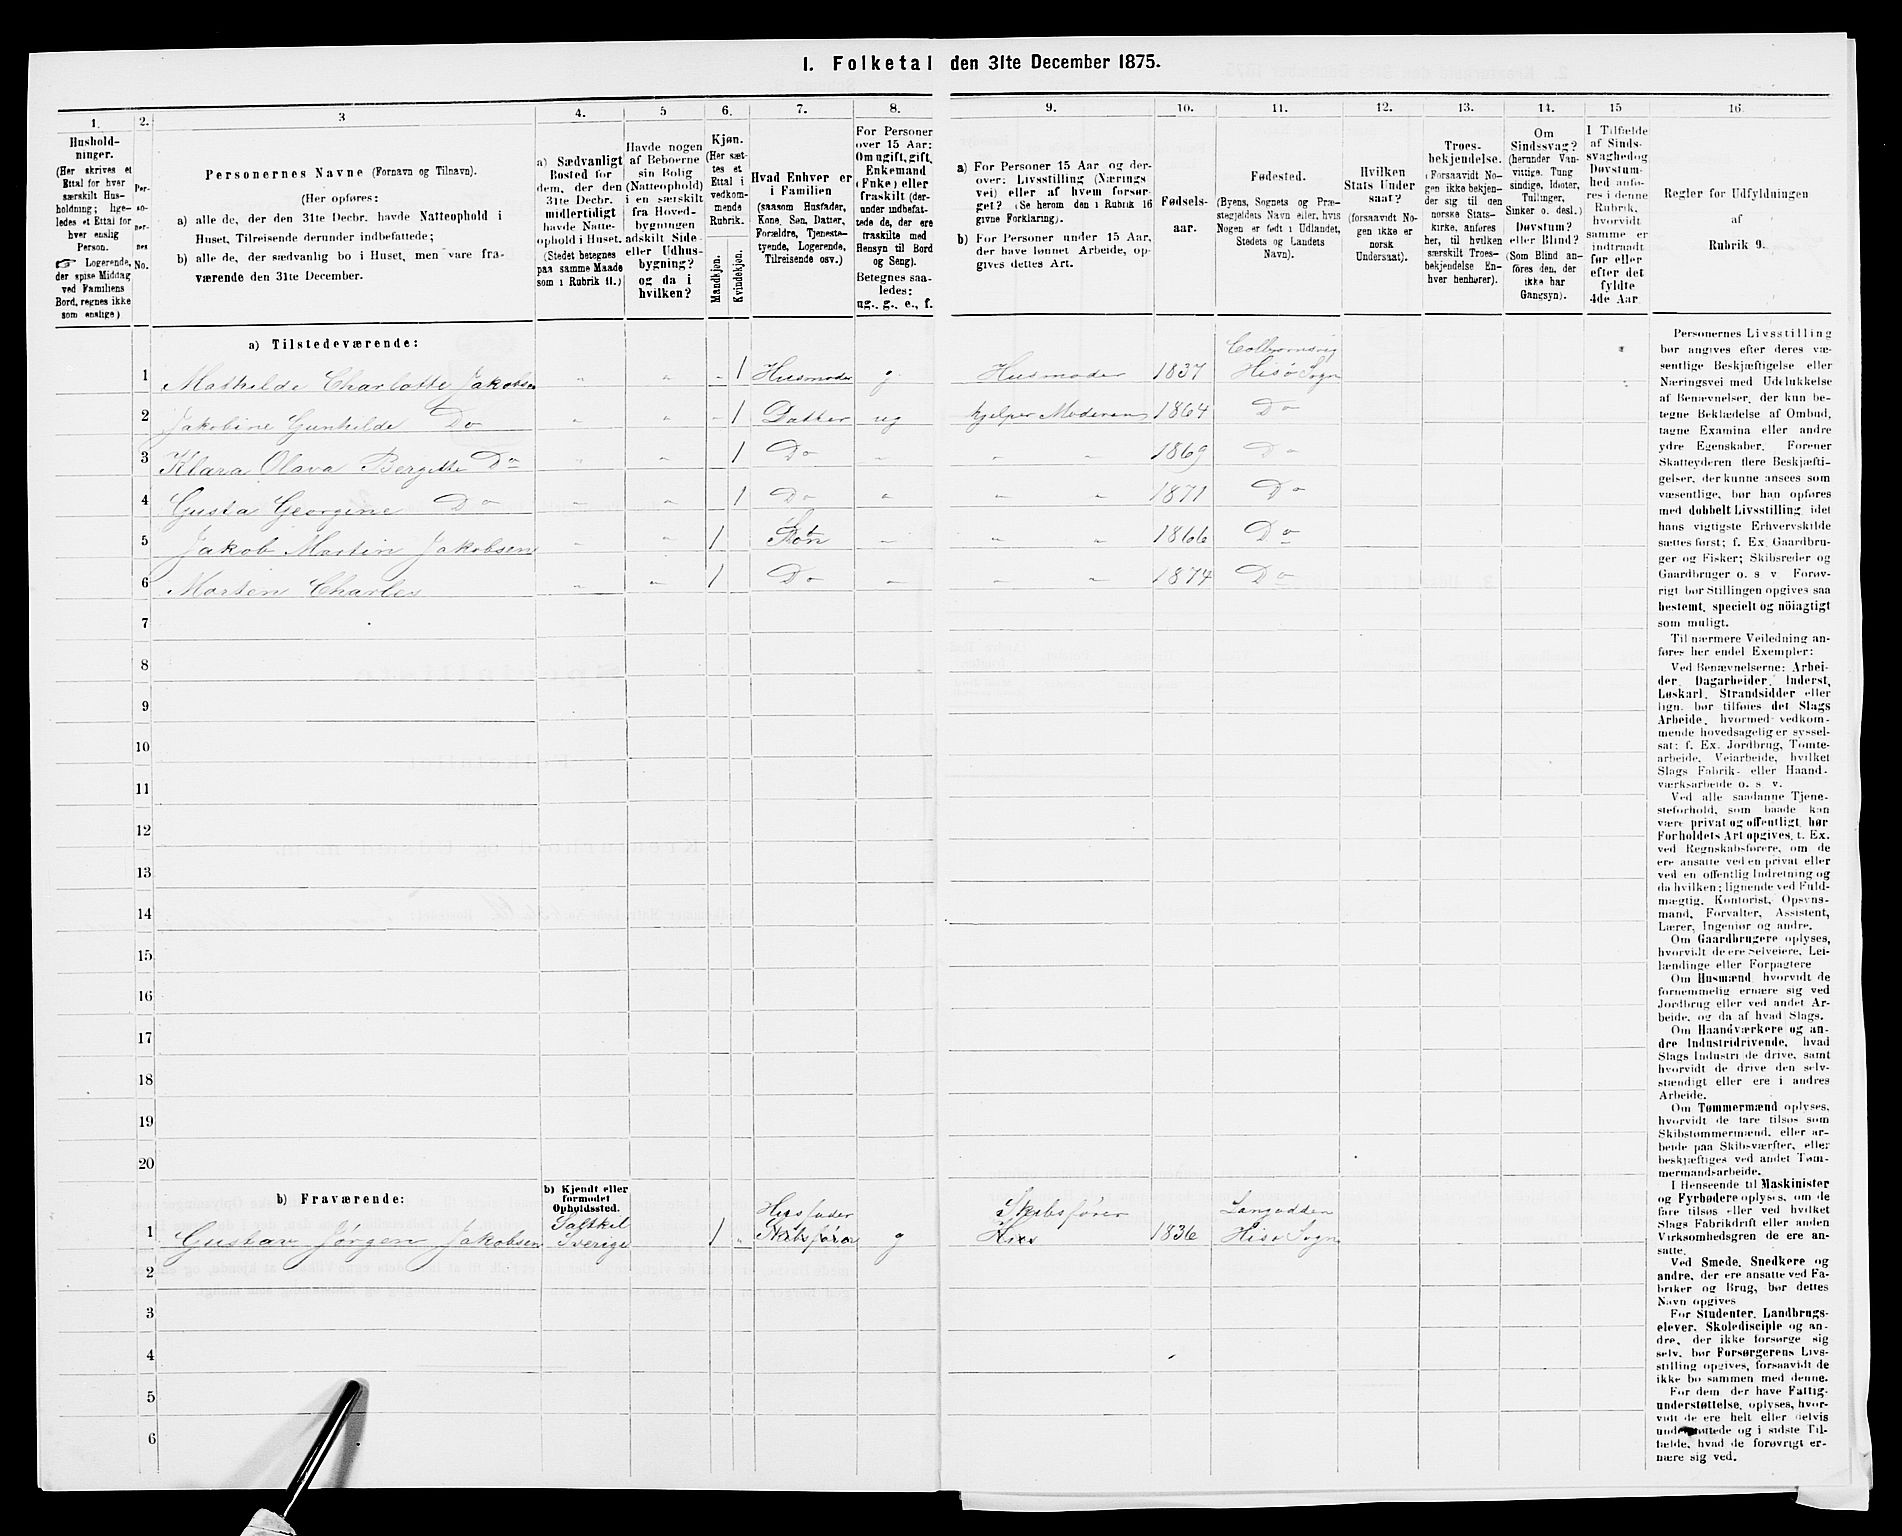 I. Folketal den 31te December 1875.
1.
Hushold-
ninger.
(Her skrives et
Ettal for hver
særskilt Hus-
holdning; lige-
ledes et Ettal for
hver enslig
Person.
☞ Logerende,
der spise Middag
ved Familiens
Bord, regnes ikke
som enslige)
2.
Per-
so-
ner-
nes
No.
3
Personernes Navne (Fornavn og Tilnavn).
(Her opføres:
a) alle de, der den 31te Decbr. havde Natteophold i
Huset, Tilreisende derunder indbefattede;
b) alle de, der sædvanlig bo i Huset, men vare fra-
værende den 31te December.
4.
a) Sædvanligt
Bosted for
dem, der den
31te Decbr.
midlertidigt
havde Natte-
ophold i Huset.
(Stedet betegnes
paa samme Maade
som i Rubrik 11.)
5
Havde nogen
af Beboerne
sin Bolig
(Natteophold)
i en særskilt
fra Hoved-
bygningen
adskilt Side-
eller Udhus-
bygning?
og da i
hvilken?
6.
Kjøn.
(Her sæt-
tes et
Ettal i
vedkom-
mende
Rubrik.
Mandkjøn.
Kvindekjøn.
7.
Hvad Enhver er
i Familien
(saasom Husfader,
Kone, Søn, Datter,
Forældre, Tjeneste-
tyende, Logerende,
Tilreisende osv.)
8.
For Personer
over 15 Aar:
Om ugift, gift,
Enkemand
(Enke) eller
fraskilt (der-
under indbefat-
tede de, der ere
fraskilte med
Hensyn til Bord
og Seng).
Betegnes saa-
ledes:
ug., g., e., f.
9.
a) For Personer 15 Aar og der-
over: Livsstilling (Nærings-
vei) eller af hvem forsør-
get? (Se herom den i Rubrik 16
givne Forklaring).
b) For Personer under 15 Aar,
der have lønnet Arbeide, op-
gives dettes Art.
10.
Fødsels-
aar.
11.
Fødested.
(Byens, Sognets og Præ-
stegjeldets Navn eller, hvis
Nogen er født i Udlandet,
Stedets og Landets
Navn).
12.
Hvilken
Stats Under
saat?
(forsaavidt No-
gen ikke er
norsk
Undersaat).
13.
Troes-
bekjendelse.
(Forsaavidt No-
gen ikke bekjen-
der sig til den
norske Stats-
kirke, anføres
her, til hvilken
særskilt Troes-
bekjendelse En-
hver henhører).
14.
Om
Sindssvag?
(herunder Van-
vittige, Tung
sindige, Idioter,
Tullinger,
Sinker o. desl.)
Døvstum?
eller Blind?
(Som Blind an-
føres den, der
ikke har
Gangsyn).
15
I Tilfælde
af Sinds-
svaghed og
Døvstum-
hed anfø-
res i denne
Rubrik,
hvorvidt
samme er
indtraadt
før eller
efter det
fyldte
4de Aar.
16.
Regler for Udfyldningen
af
Rubrik 9.
a) Tilstedeværende:
1 Mathilde Charlotte Jakobsen " " " 1 Husmoder g. Husmoder 1837 Colbjørnsvig Hisø Sogn
2 Jakobine Gunhilde Do " " " 1 Datter ug hjelper Moderen 1864 Do
3 Klara Olava Bergitte Do " " 1 Do " " " 1869 Do
4 Gusta Georgine Do " " 1 Do " " " 1871 Do
5 Jakob Martin Jakobsen " " 1 Søn " " " 1866 Do
6 Morten Charles " " 1 Do " " " 1874 Do
7
8
9
10
11
12
13
14
15
16
17
18
19
20
b) Fraværende:
b) Kjendt eller
formodet
Opholdssted.
1 Gustav Jørgen Jakobsen Saltkil Sverige 1 " Husfader Skibsfører g Skibsfører 1836 Langodden Hisø Sogn
2
3
4
5
6
Personernes Livsstilling
bør angives efter deres væ-
sentlige Beskjæftigelse eller
Næringsvei med Udelukkelse
af Benævnelser, der kun be-
tegne Beklædelse af Ombud,
tagne Examina eller andre
ydre Egenskaber. Forener
Skatteyderen flere Beskjæfti-
gelser, der kunne ansees som
væsentlige, bør han opføres
med dobbelt Livsstilling, idet
hans vigtigste Erhvervskilde
sættes først; f. Ex. Gaardbru-
ger og Fisker; Skibsreder og
Gaardbruger o. s v. Forøv-
rigt bør Stillingen opgives saa
bestemt, specielt og nöiagtigt
som muligt.
Til nærmere Veiledning an-
føres her endel Exempler:
Ved Benævnelserne: Arbei-
der, Dagarbeider, Inderst,
Løskarl, Strandsidder eller
lign. bør tilføres det Slags
Arbeide, hvormed vedkom-
mende hovedsagelig er syssel-
sat; f. Ex. Jordbrug, Tomte-
arbeide, Veiarbeide, hvilket
Slags Fabrik- eller Haand-
værksarbeide o. s. v.
Ved alle saadanne Tjene-
steforhold, som baade kan
være privat og offentligt, bør
Forholdets Art opgives, t. Ex.
ved Regnskabsførere, om de
ere ansatte ved en privat eller
ved en offentlig Indretning og
da hvilken; lignende ved Fuld-
mægtig, Kontorist, Opsyns-
mand, Forvalter, Assistent,
Lærer, Ingeniør og andre.
Om Gaardbrugere oplyses,
hvorvidt de ere Selveiere, Lei-
lændinge eller Forpagtere
Om Husmænd, hvorvidt de
fornemmelig ernære sig ved
Jordbrug eller ved andet Ar-
beide, og da af hvad Slags.
Om Haandværkere og an-
dre Industridrivende, hvad
Slags Industri de drive, samt
hvorvidt de drive den selv-
stændigt eller ere i andres
Arbeide.
Om Tømmermænd oplyses,
hvorvidt de fare tilsøs som
Skibstømmermænd, eller ar-
beide paa Skibsværfter, eller
beskjæftiges ved andet Tøm-
mermandsarbeide.
I Henseende til Maskinister
og Fyrbødere oplyses, om de
fare tilsøs eller ved hvilket
Slags Fabrikdrift eller anden
Virksomhedsgren de ere an-
satte.
Ved Smede, Snedkere og
andre, der ere ansatte ved Fa-
briker og Brug, bør dettes
Navn opgives
For Studenter, Landbrugs-
elever, Skoledisciple og an-
dre, der ikke forsørge sig
selv, bør Forsørgerens Livs-
stilling opgives, forsaavidt de
ikke bo sammen med denne.
For dem, der have Fattig-
understøttelse, oplyses, hvor-
vidt de ere helt eller delvis
understøttede og i sidste Til-
fælde, hvad de forøvrigt er-
nære sig ved.